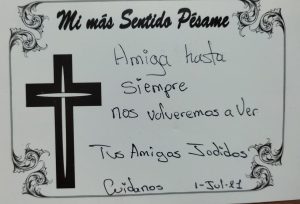 Mi más Sentido Pésame
Amiga hasta
siempre
nos volveremos a ver
Tus Amigas Jodidas
Cuidanos 1-Jul-21